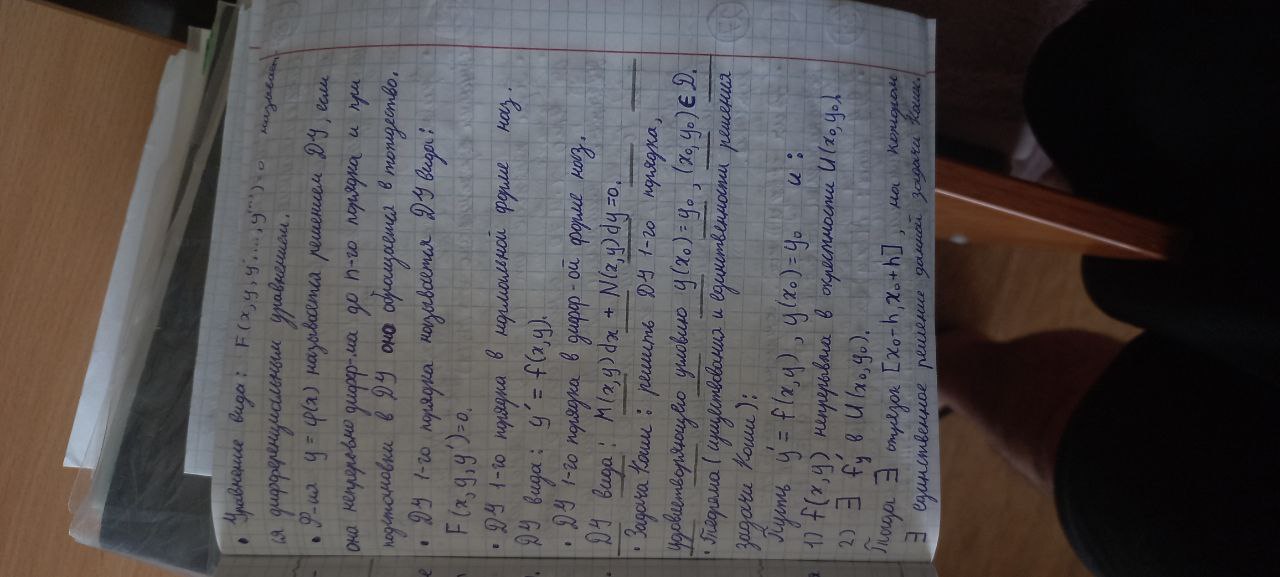 • Уравнение вида: F(x, y, y', ..., y⁽ⁿ⁾) = 0 называет-
ся дифференциальным уравнением.
• Ф-ия y = φ(x) называется решением ДУ, если
она непрерывно дифф-ма до n-го порядка и при
подстановки в ДУ оно обращается в тождество.
• ДУ 1-го порядка называется ДУ вида:
F(x, y, y') = 0.
• ДУ 1-го порядка в нормальной форме наз.
ДУ вида: y' = f(x, y).
• ДУ 1-го порядка в дифф-ой форме наз.
ДУ вида: M(x, y)dx + N(x, y)dy = 0.
• Задача Коши: решить ДУ 1-го порядка,
удовлетворяющего условию y(x₀) = y₀, (x₀, y₀) ∈ D.
• Теорема (существования и единственности решения
задачи Коши):
Пусть y' = f(x, y), y(x₀) = y₀ и:
1) f(x, y) непрерывна в окрестности U(x₀, y₀)
2) ∃ f'y в U(x₀, y₀).
Тогда ∃ отрезок [x₀-h, x₀+h], на котором
∃ единственное решение данной задачи Коши.